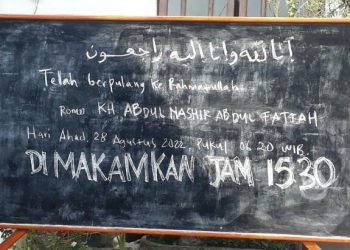 انا لله وانا اليه راجعون
Telah berpulang ke Rahmatullah
Romo KH. ABDUL NASHIR ABDUL FATTAH
Hari Ahad, 28 Agustus 2022 Pukul 06.20 WIB
DI MAKAMKAN JAM 15.30